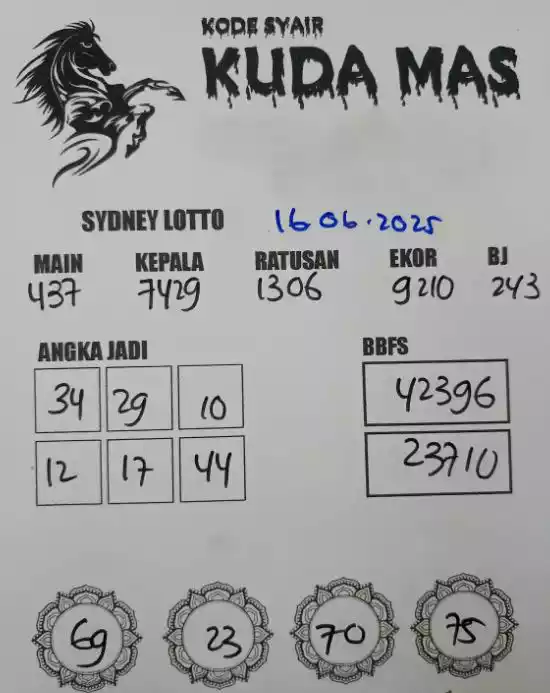 KODE SYAIR
KUDA MAS
SYDNEY LOTTO 16 06.2025
MAIN KEPALA RATUSAN EKOR BJ
437 7429 1306 9210 243
ANGKA JADI BBFS
34 29 10 42396
12 17 44 23710
69 23 70 75